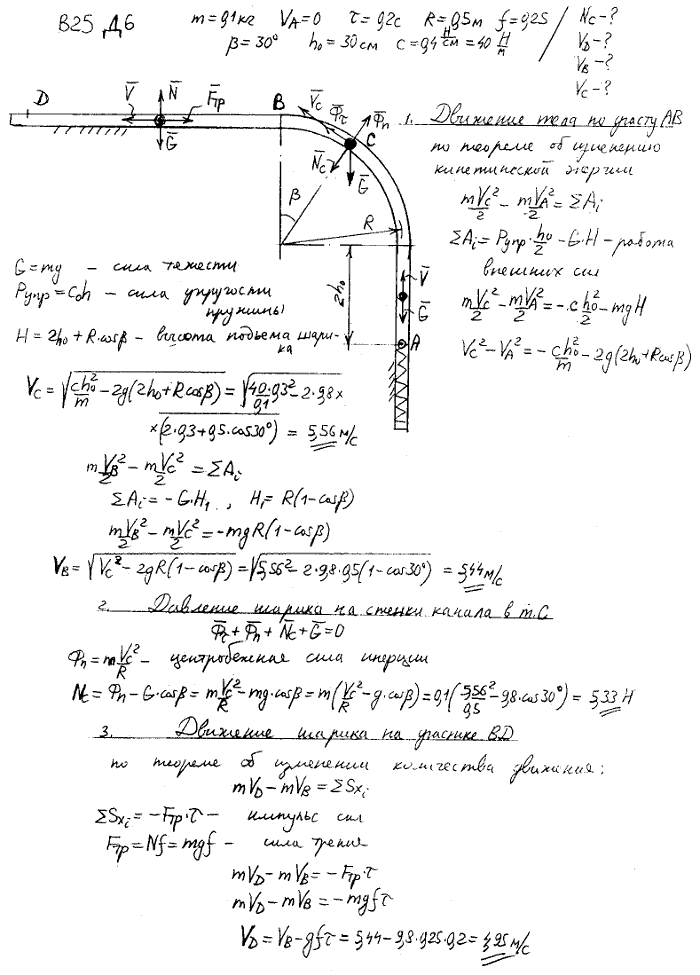 B25 Д6
m=0,1кг V_A=0 τ=0,2с R=0,5м f=0,25
β=30° h₀=30см c=0,4 Н/см=40 Н/м
N_C-?
V_D-?
V_B-?
V_C-?
D V̄ N̄ F̄тр Ḡ B V̄_C Φ̄τ Φ̄n C N̄_C Ḡ
β R 2h₀ V̄ Ḡ A
1. Движение тела по участку AB
по теореме об изменению
кинетической энергии
mV_C²/2 - mV_A²/2 = ΣA_i
ΣA_i = Pупр·h₀/2 - G·H - работа
внешних сил
mV_C²/2 - mV_A²/2 = -c h₀²/2 - mgH
V_C² - V_A² = -ch₀²/m - 2g(2h₀+Rcosβ)
G=mg - сила тяжести
Pупр=c₀h - сила упругости
пружины
H=2h₀+R·cosβ - высота подъема шари-
ка
V_C=√(ch₀²/m - 2g(2h₀+Rcosβ)) = √(40·0,3²/0,1 - 2·9,8×
×(2·0,3+0,5·cos30°)) = 5,56 м/с
mV_B²/2 - mV_C²/2 = ΣA_i
ΣA_i = -G·H₁ , H₁= R(1-cosβ)
mV_B²/2 - mV_C²/2 = -mgR(1-cosβ)
V_B=√(V_C² - 2gR(1-cosβ)) = √(5,56² - 2·9,8·0,5(1-cos30°)) = 5,44 м/с
2. Давление шарика на стенки канала в т.C
Φ̄τ + Φ̄n + N̄_C + Ḡ = 0
Φn = m V_C²/R - центробежная сила инерции
N_C = Φn - G·cosβ = m V_C²/R - mg·cosβ = m(V_C²/R - g·cosβ) = 0,1(5,56²/0,5 - 9,8·cos30°) = 5,33 Н
3. Движение шарика на участке BD
по теореме об изменении количества движения:
mV_D - mV_B = ΣSx_i
ΣSx_i = -Fтр·τ - импульс сил
Fтр = Nf = mgf - сила трения
mV_D - mV_B = -Fтр·τ
mV_D - mV_B = -mgfτ
V_D = V_B - gfτ = 5,44 - 9,8·0,25·0,2 = 4,95 м/с